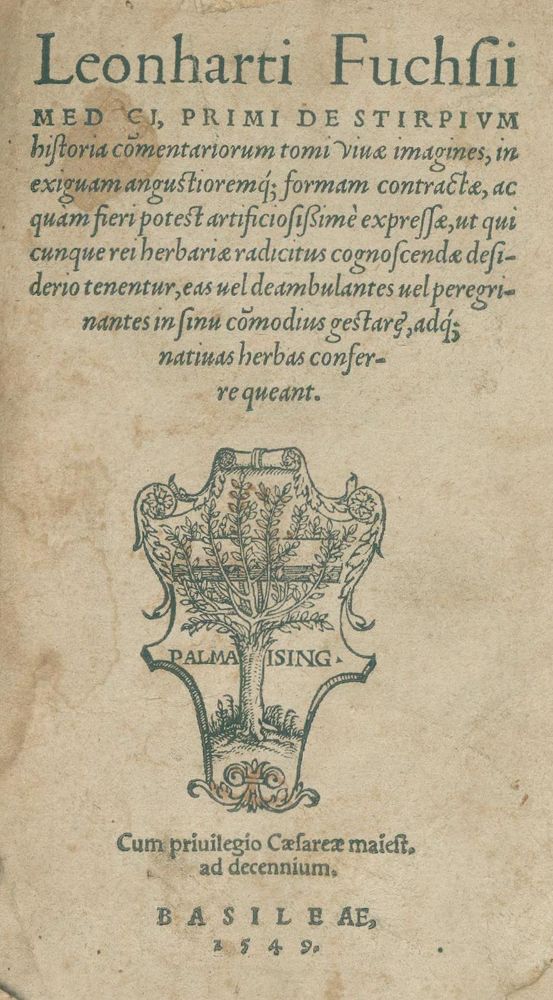 Leonharti Fuchſii
MED CI, PRIMI DE STIRPIVM
hiſtoria cõmentariorum tomi viuæ imagines, in
exiguam anguſtioremq́; formam contractæ, ac
quam fieri poteſt artificioſißimè expreſſæ, ut qui
cunque rei herbariæ radicitus cognoſcendæ deſi-
derio tenentur, eas uel deambulantes uel peregri-
nantes in ſinu cõmodius geſtarę, adq́;
natiuas herbas confer-
re queant.
PALMA ISING.
Cum priuilegio Cæſareæ maieſt.
ad decennium.
BASILEAE,
1549.